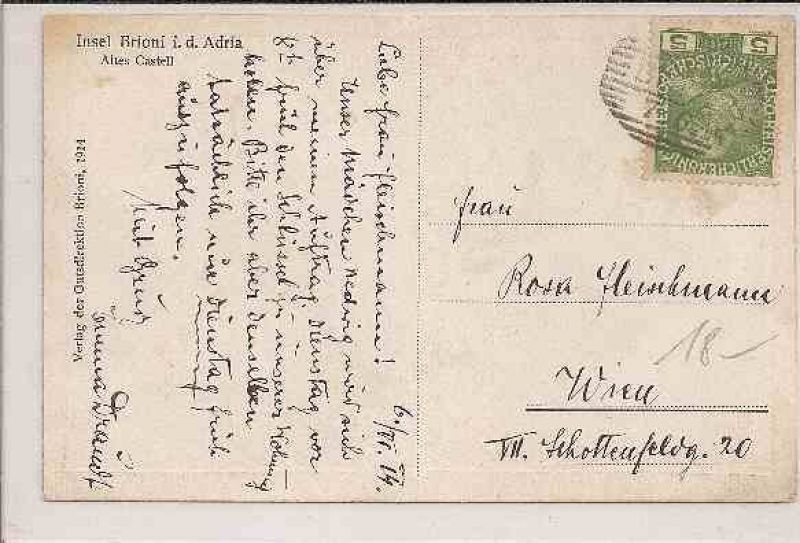 Insel Brioni i. d. Adria
Altes Castell
Verlag der Gutsdirektion Brioni, 1914
6./VI. 14.
Liebe Frau Fleischmann!
Unser Mädchen Hedwig wird sich
über meinen Auftrag, Dienstag vor
früh den Schlüssel zu unserer Wohnung
holen. Bitte ihr aber denselben
tatsächlich nur Dienstag früh
auszufolgen.
Mit Gruß
5
5
Frau
Rosa Fleischmann
Wien
VII. Schottenfeldg. 20
18-